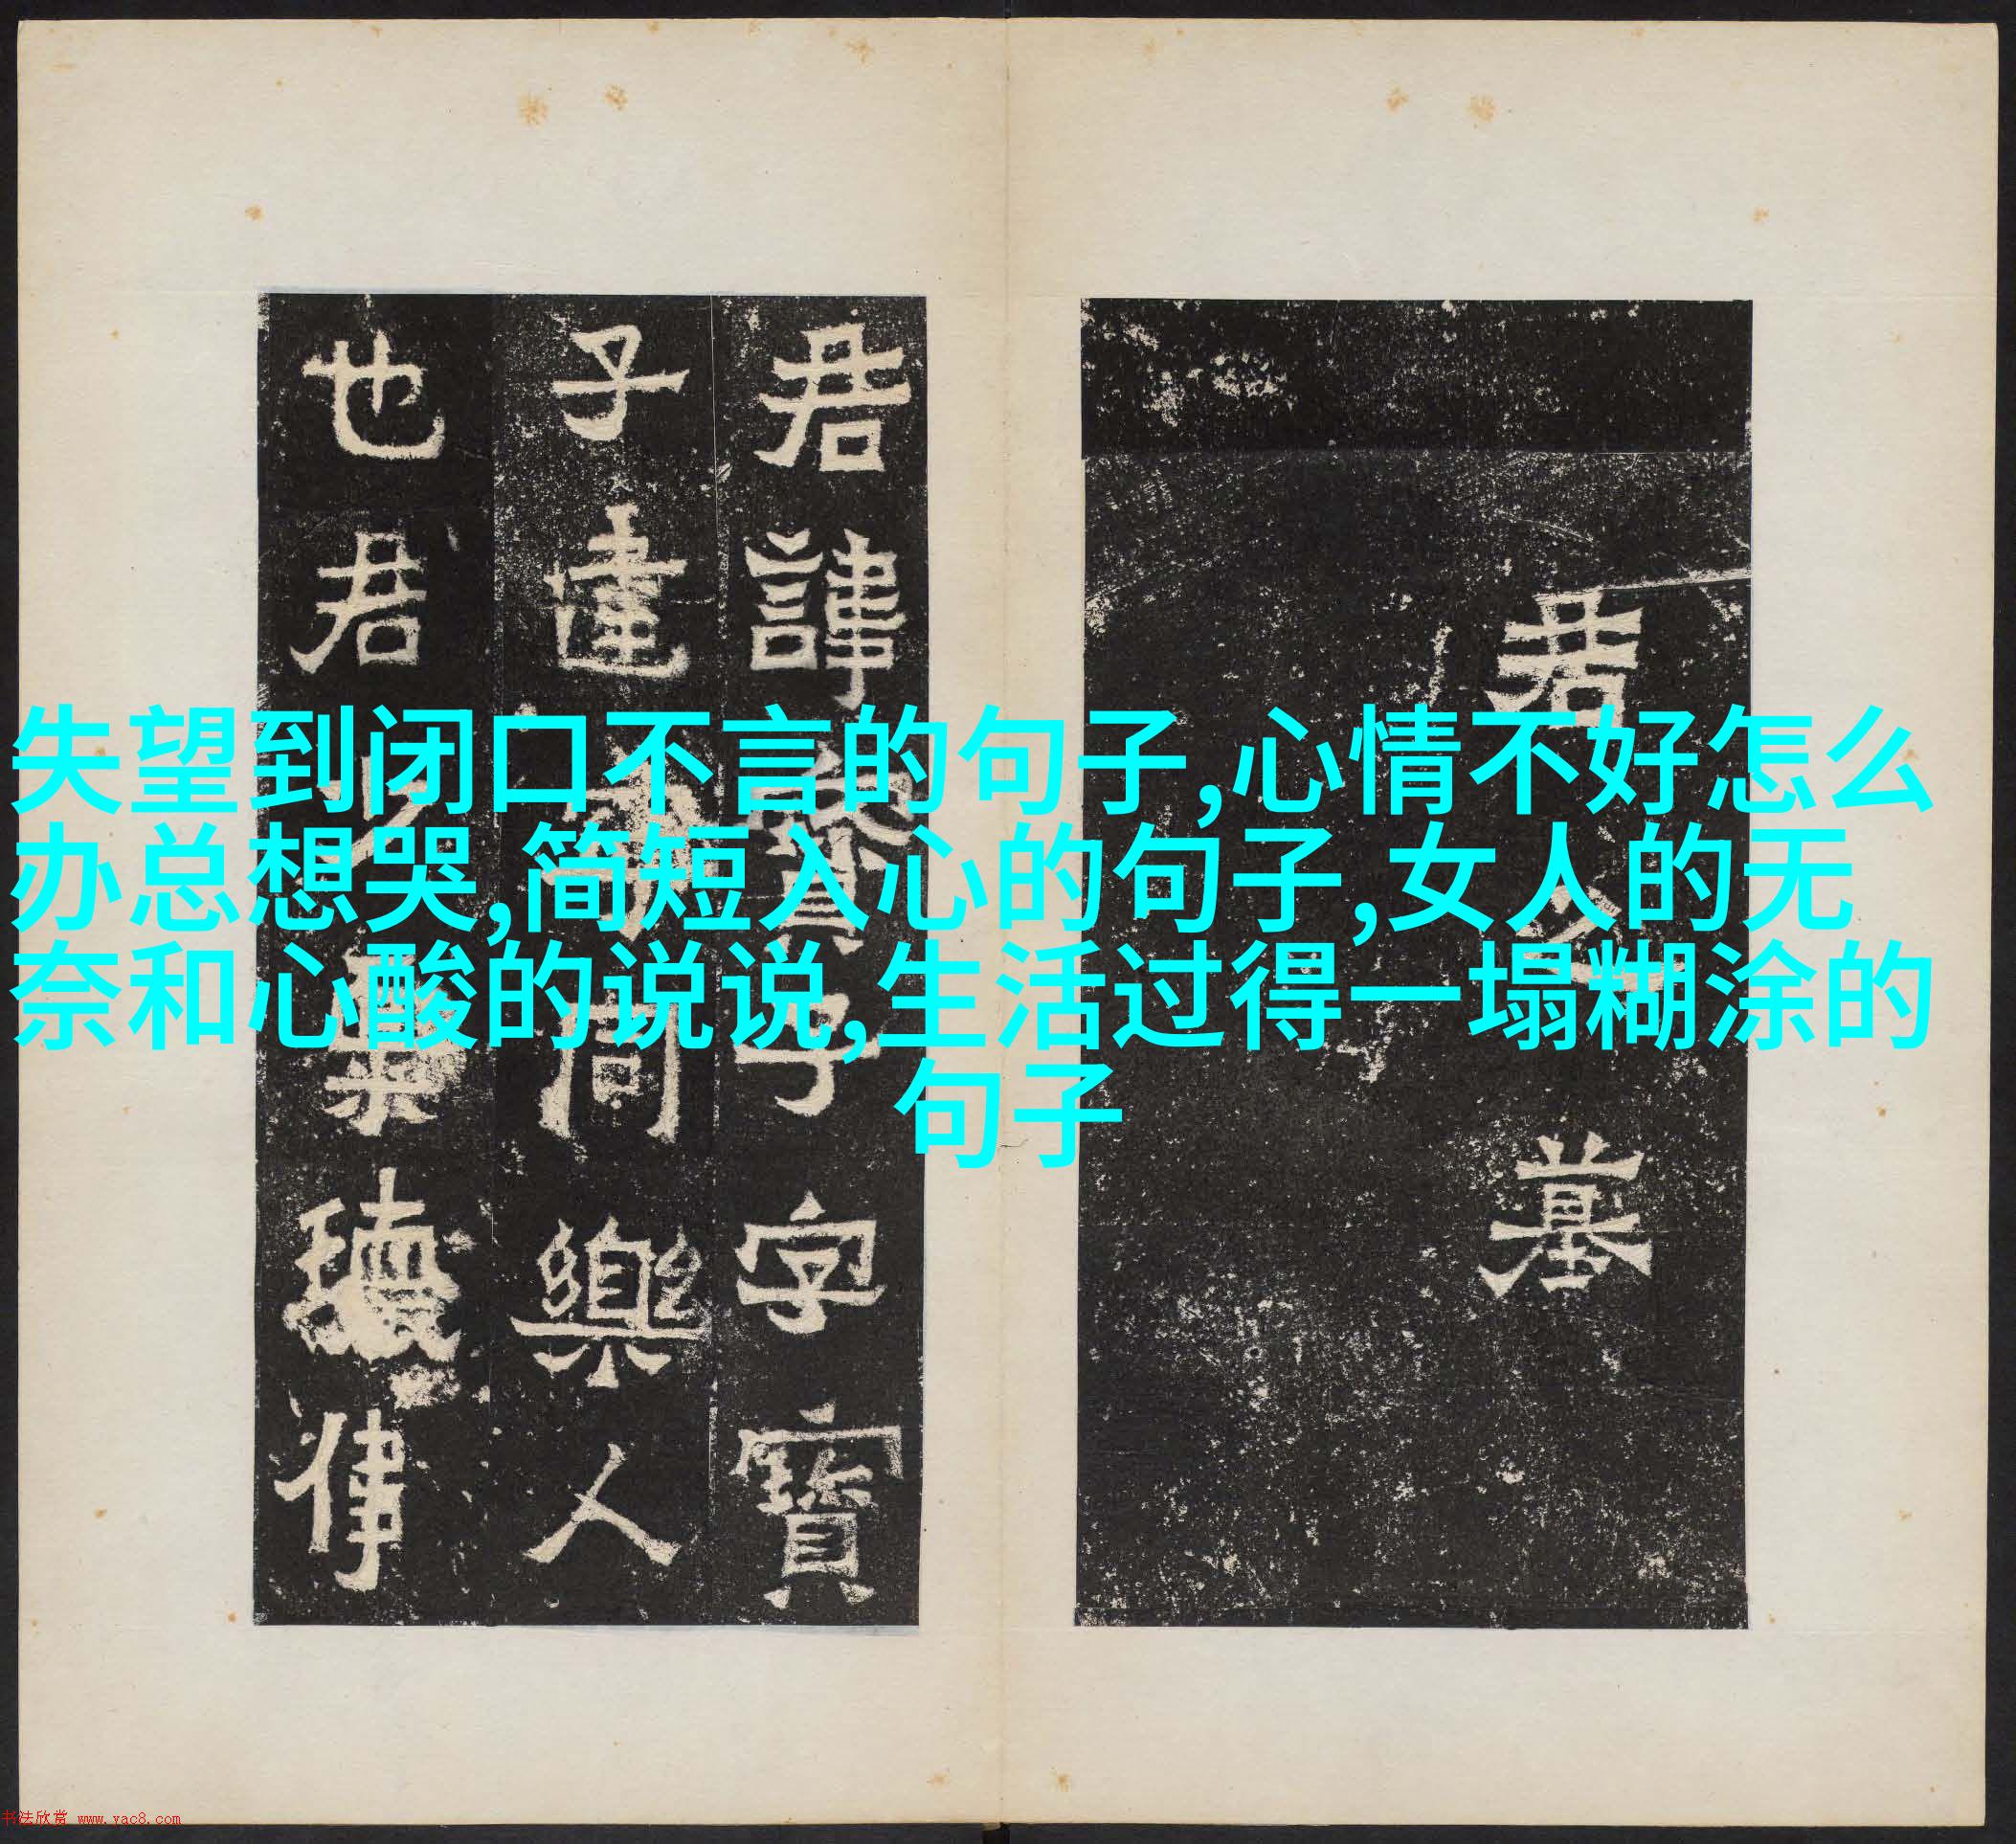 失望到闭口不言的句子,心情不好怎么
办总想哭,简短入心的句子,女人的无
奈和心酸的说说,生活过得一塌糊涂的
句子
君
墓
君諱
子字寶
子達
周樂人
也君
書法欣赏 www.yac8.com